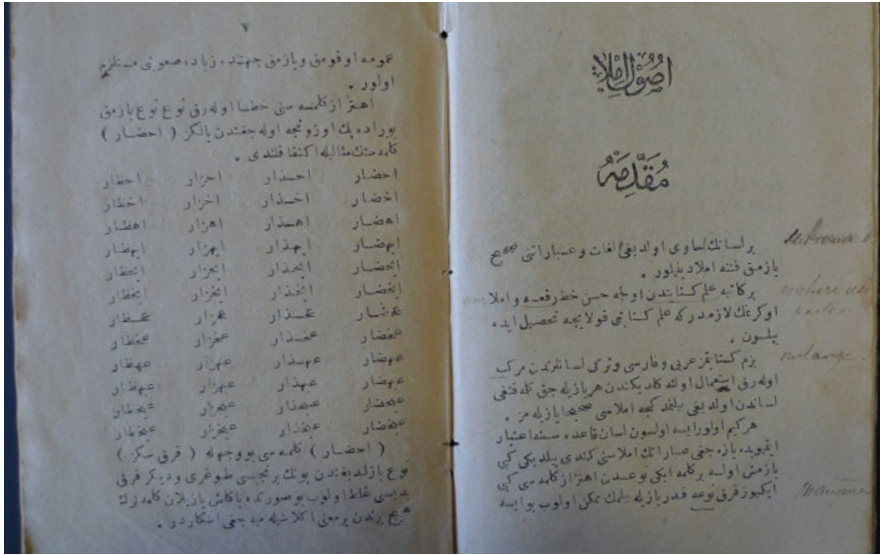 اصول املا
مقدمه
بر لسانك لساوى اولديغى لغات و عباراتنى صحيح
يازمق فننه املا دينيلور .
بر كاتبه علم كتابتدن اولجه حسن خط رقعه و املا
اوكرنمك لازمدر كه علم كتابتى قولايجه تحصيل ايده
بيلسون .
بزم كتابتمز عربى و فارسى و تركى لسانلرندن مركب
اوله رق استعمال اولنه كلديكندن هر يازيله جق كلمه قنغى
لساندن اولديغى بيلنمدكجه املاسى صحيحا يازيله مز .
هر كيم اولور ايسه اولسون لسان قاعده سنه اعتبار
ايتميوبده يازه جغى عباراتك املاسنى كندى بيلديكى كبى
يازمش اولسه بر كلمه ايكى نوعدن اهتراز كلمه سى كبى
ايكيوز قرق نوعه قدر يازيله بيلمك ممكن اولوب بو ايسه
melange
٧
عمومه اوقومق و يازمق جهتنده زياده صعوبتى مستلزم
اولور .
اهتراز كلمه سنى خطا اوله رق نوع نوع يازمق
بوراده پك اوزونجه اوله جغندن يالكز ( احضار )
كلمه سنك مثاليله اكتفا قلندى .
احضار احذار احزار احظار
اخضار اخذار اخزار اخظار
اهضار اهذار اهزار اهظار
ايهضار ايهذار ايهزار ايهظار
ايحضار ايحذار ايحزار ايحظار
ايخضار ايخذار ايخزار ايخظار
عحضار عحذار عحزار عحظار
عخضار عخذار عخزار عخظار
عهضار عهذار عهزار عهظار
عيهضار عيهذار عيهزار عيهظار
عيحضار عيحذار عيحزار عيحظار
عيخضار عيخذار عيخزار عيخظار
( احضار ) كلمه سى بو وجهله ( قرق سكز )
نوع يازلديغندن بونك برنجيسى طوغرى و ديكر قرق
يديسى غلط اولوب بو صورتده ياكلش يازيلان كلمه لرك
هيچ برندن بر معنى اكلاشيله ميه جغى آشكاردر .